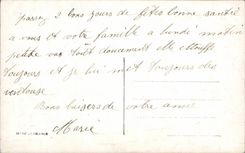 passez 2 bons jours de fêtes bonne santé
a vous et votre famille a lundi matin
petite vas tout doucement elle etouffe
toujours et je lui met toujours des
ventouse
Bons baisers de votre amie
Marie